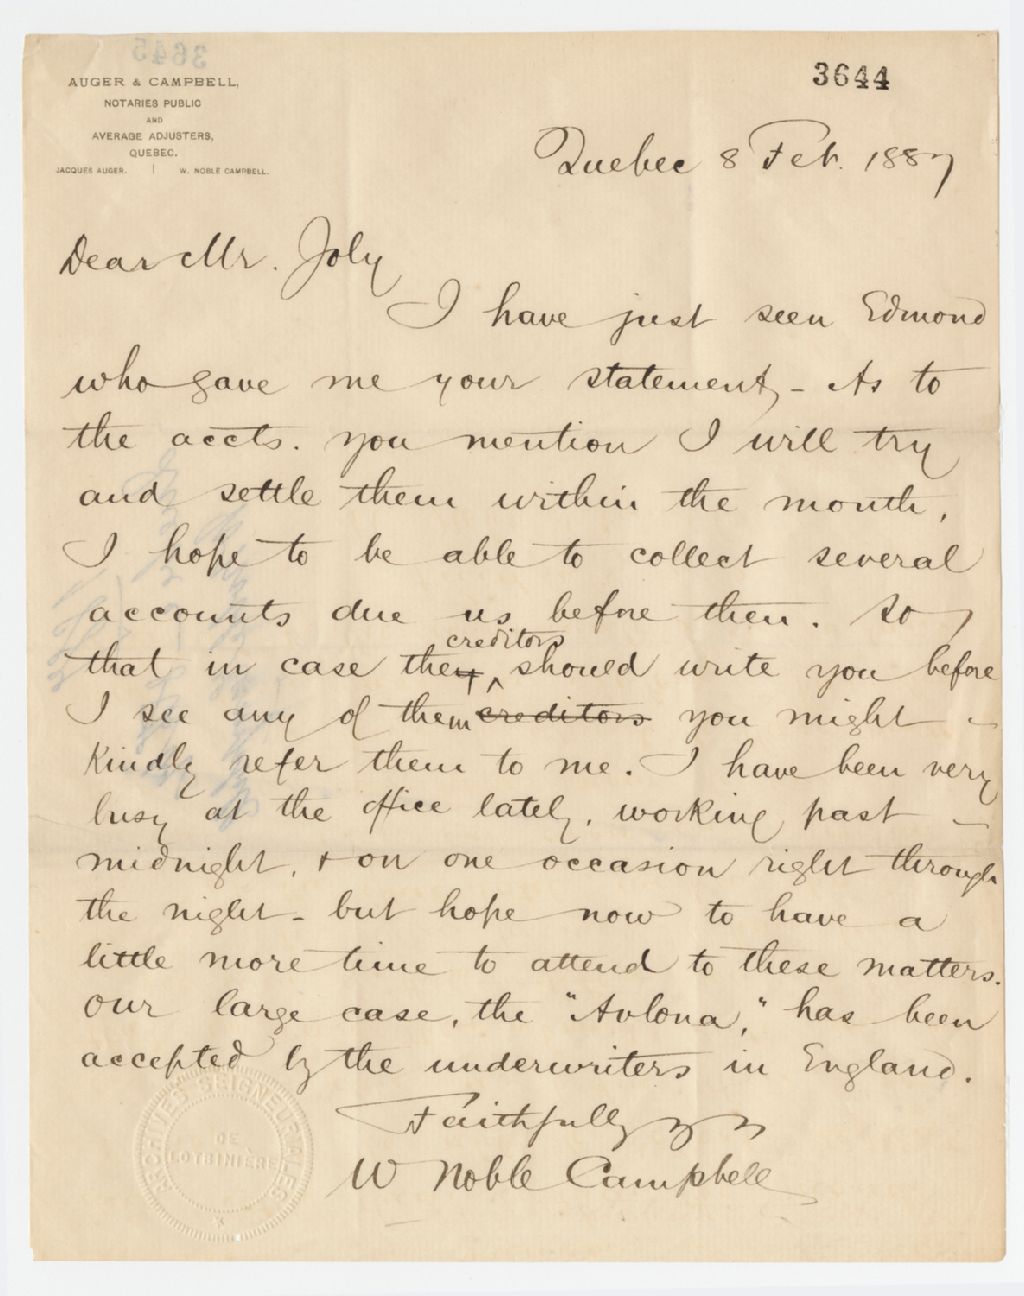 3645
3644
AUGER & CAMPBELL,
NOTARIES PUBLIC
AND
AVERAGE ADJUSTERS,
QUEBEC.
JACQUES AUGER. | W. NOBLE CAMPBELL.
Quebec 8 Feb. 1887
Dear Mr. Joly
I have just seen Edmond
who gave me your statement, - As to
the accts. you mention I will try
and settle them within the month,
I hope to be able to collect several
accounts due us before then. so
creditors
that in case they should write you before
I see any of them creditors you might -
kindly refer them to me. I have been very
busy at the office lately, working past -
midnight, + on one occasion right through
the night - but hope now to have a
little more time to attend to these matters.
Our large case, the "Avlona," has been
accepted by the underwriters in England.
Faithfully yrs
W Noble Campbell
ARCHIVES SEIGNEURIALES
DE
LOTBINIÈRE